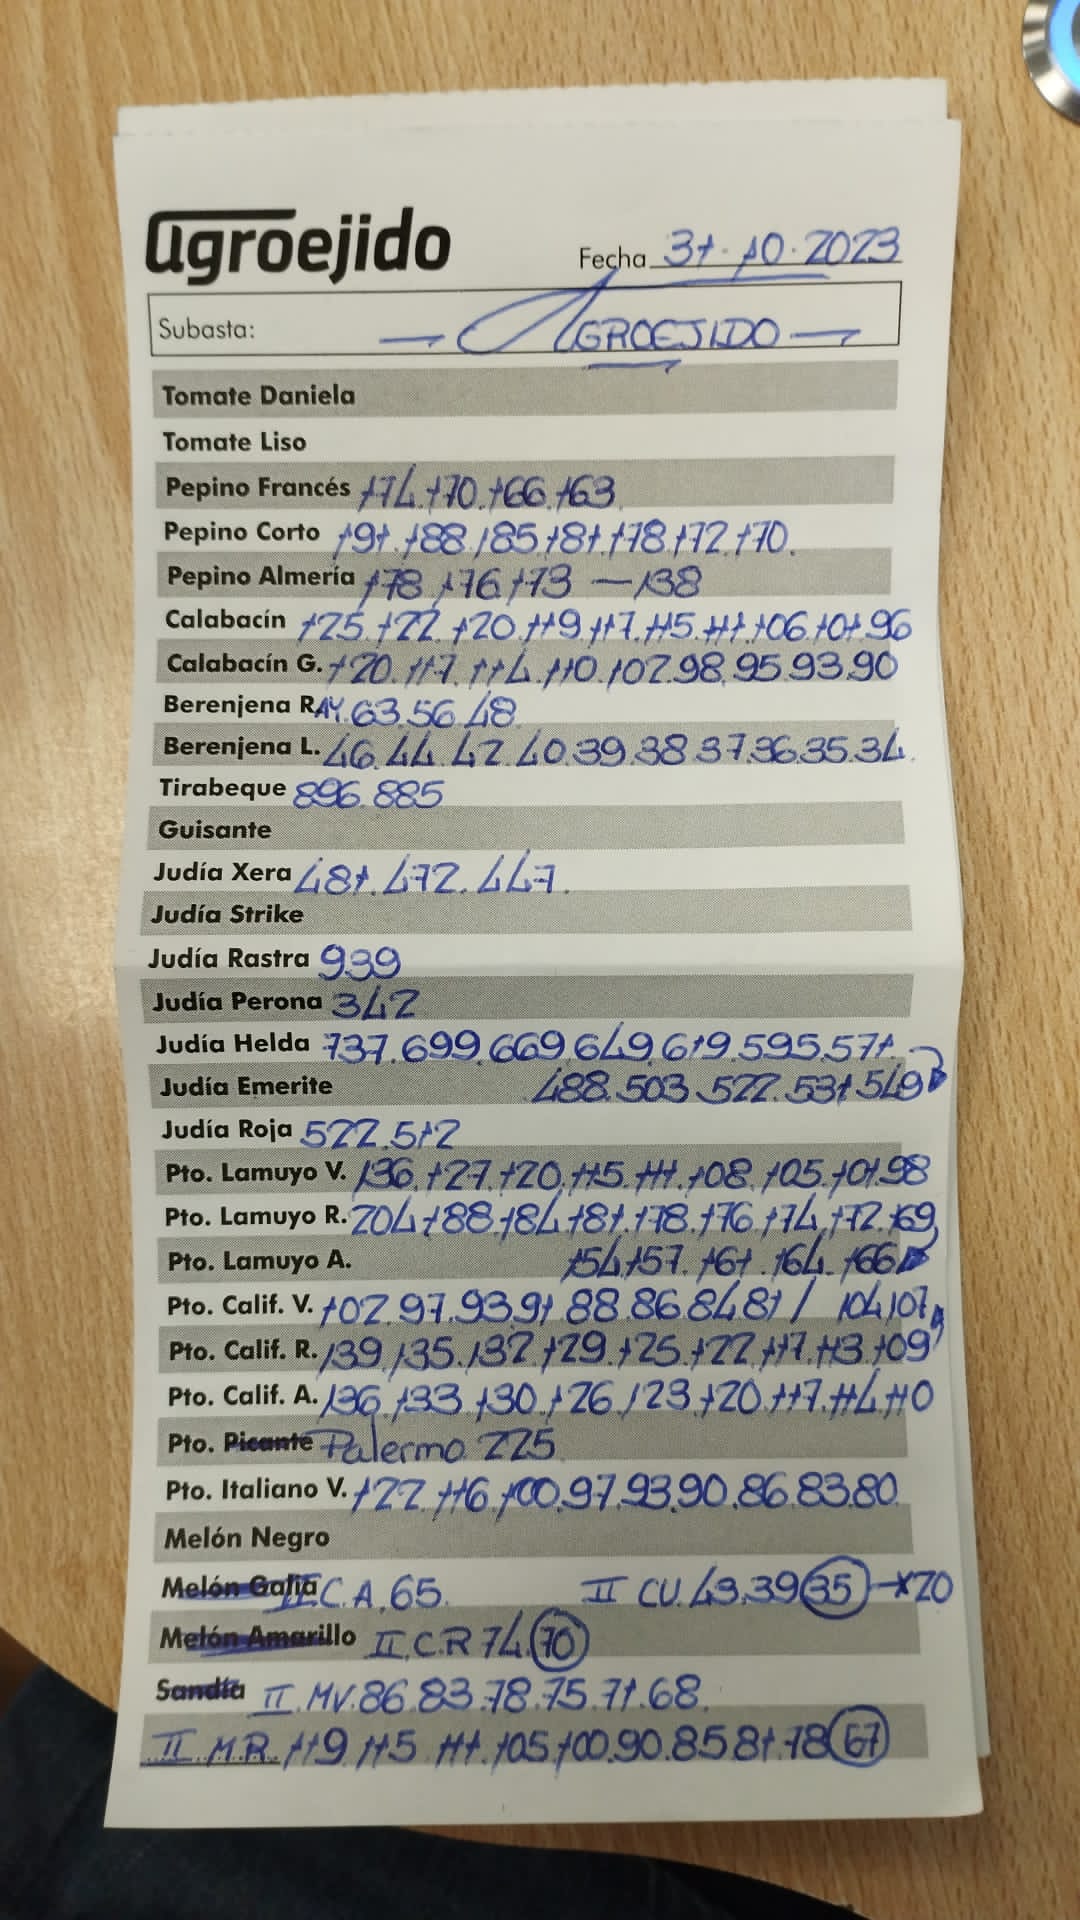 agroejido
Fecha 31.10.2023
Subasta: — AGROEJIDO —
Tomate Daniela
Tomate Liso
Pepino Francés 174.170.166.163
Pepino Corto 191.188.185.181.178.172.170.
Pepino Almería 178.176.173 — 138
Calabacín 125.122.120.119.117.115.111.106.101.96
Calabacín G. 120.117.114.110.102.98.95.93.90
Berenjena RAY.63.56.48
Berenjena L. 46.44.42.40.39.38.37.36.35.34.
Tirabeque 896.885
Guisante
Judía Xera 481.472.447.
Judía Strike
Judía Rastra 939
Judía Perona 342
Judía Helda 737.699.669.649.619.595.571.
Judía Emerite 488.503.522.531.549
Judía Roja 522.512
Pto. Lamuyo V. 136.127.120.115.111.108.105.101.98
Pto. Lamuyo R. 204.188.184.181.178.176.174.172.169
Pto. Lamuyo A. 154.157.161.164.166
Pto. Calif. V. 102.97.93.91.88.86.84.81 / 104.107
Pto. Calif. R. 139.135.132.129.125.122.117.113.109
Pto. Calif. A. 136.133.130.126.123.120.117.114.110
Pto. Picante Palermo 225
Pto. Italiano V. 122.116.100.97.93.90.86.83.80
Melón Negro
Melón Galia II C.A.65. II CU.43.39 35 -x20
Melón Amarillo II.C.R 74.70
Sandía II.MV.86.83.78.75.71.68.
II M.R. 119.115.111.105.100.90.85.81.78 67